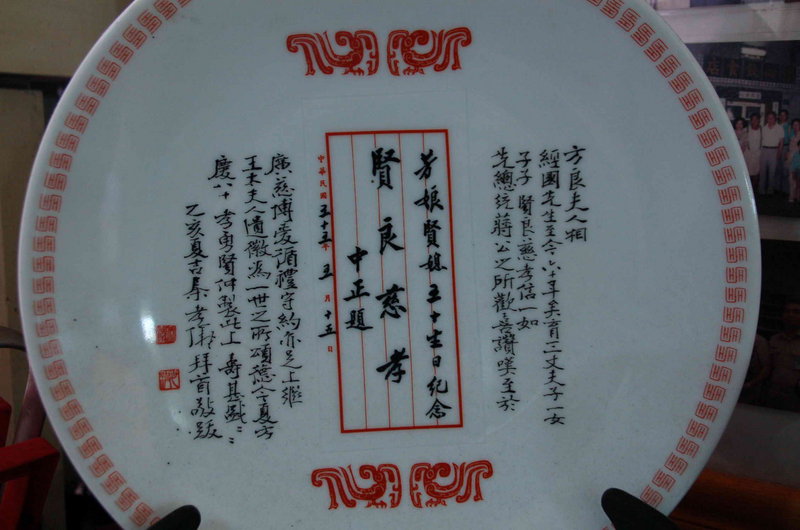 方良夫人相
經國先生至今六十年矣育三丈夫子一女
子子賢良慈孝信一如
先總統蔣公之所歡喜讚嘆至於
芳娘賢媳五十生日紀念
賢良慈孝
中正題
中華民國五十五年五月十五日
廣慈博愛循禮守約亦足上繼
王太夫人遺徽為一世之所頌德今夏方
慶八十孝勇賢仲製此上壽其
乙亥夏吉秦孝儀拜首敬跋